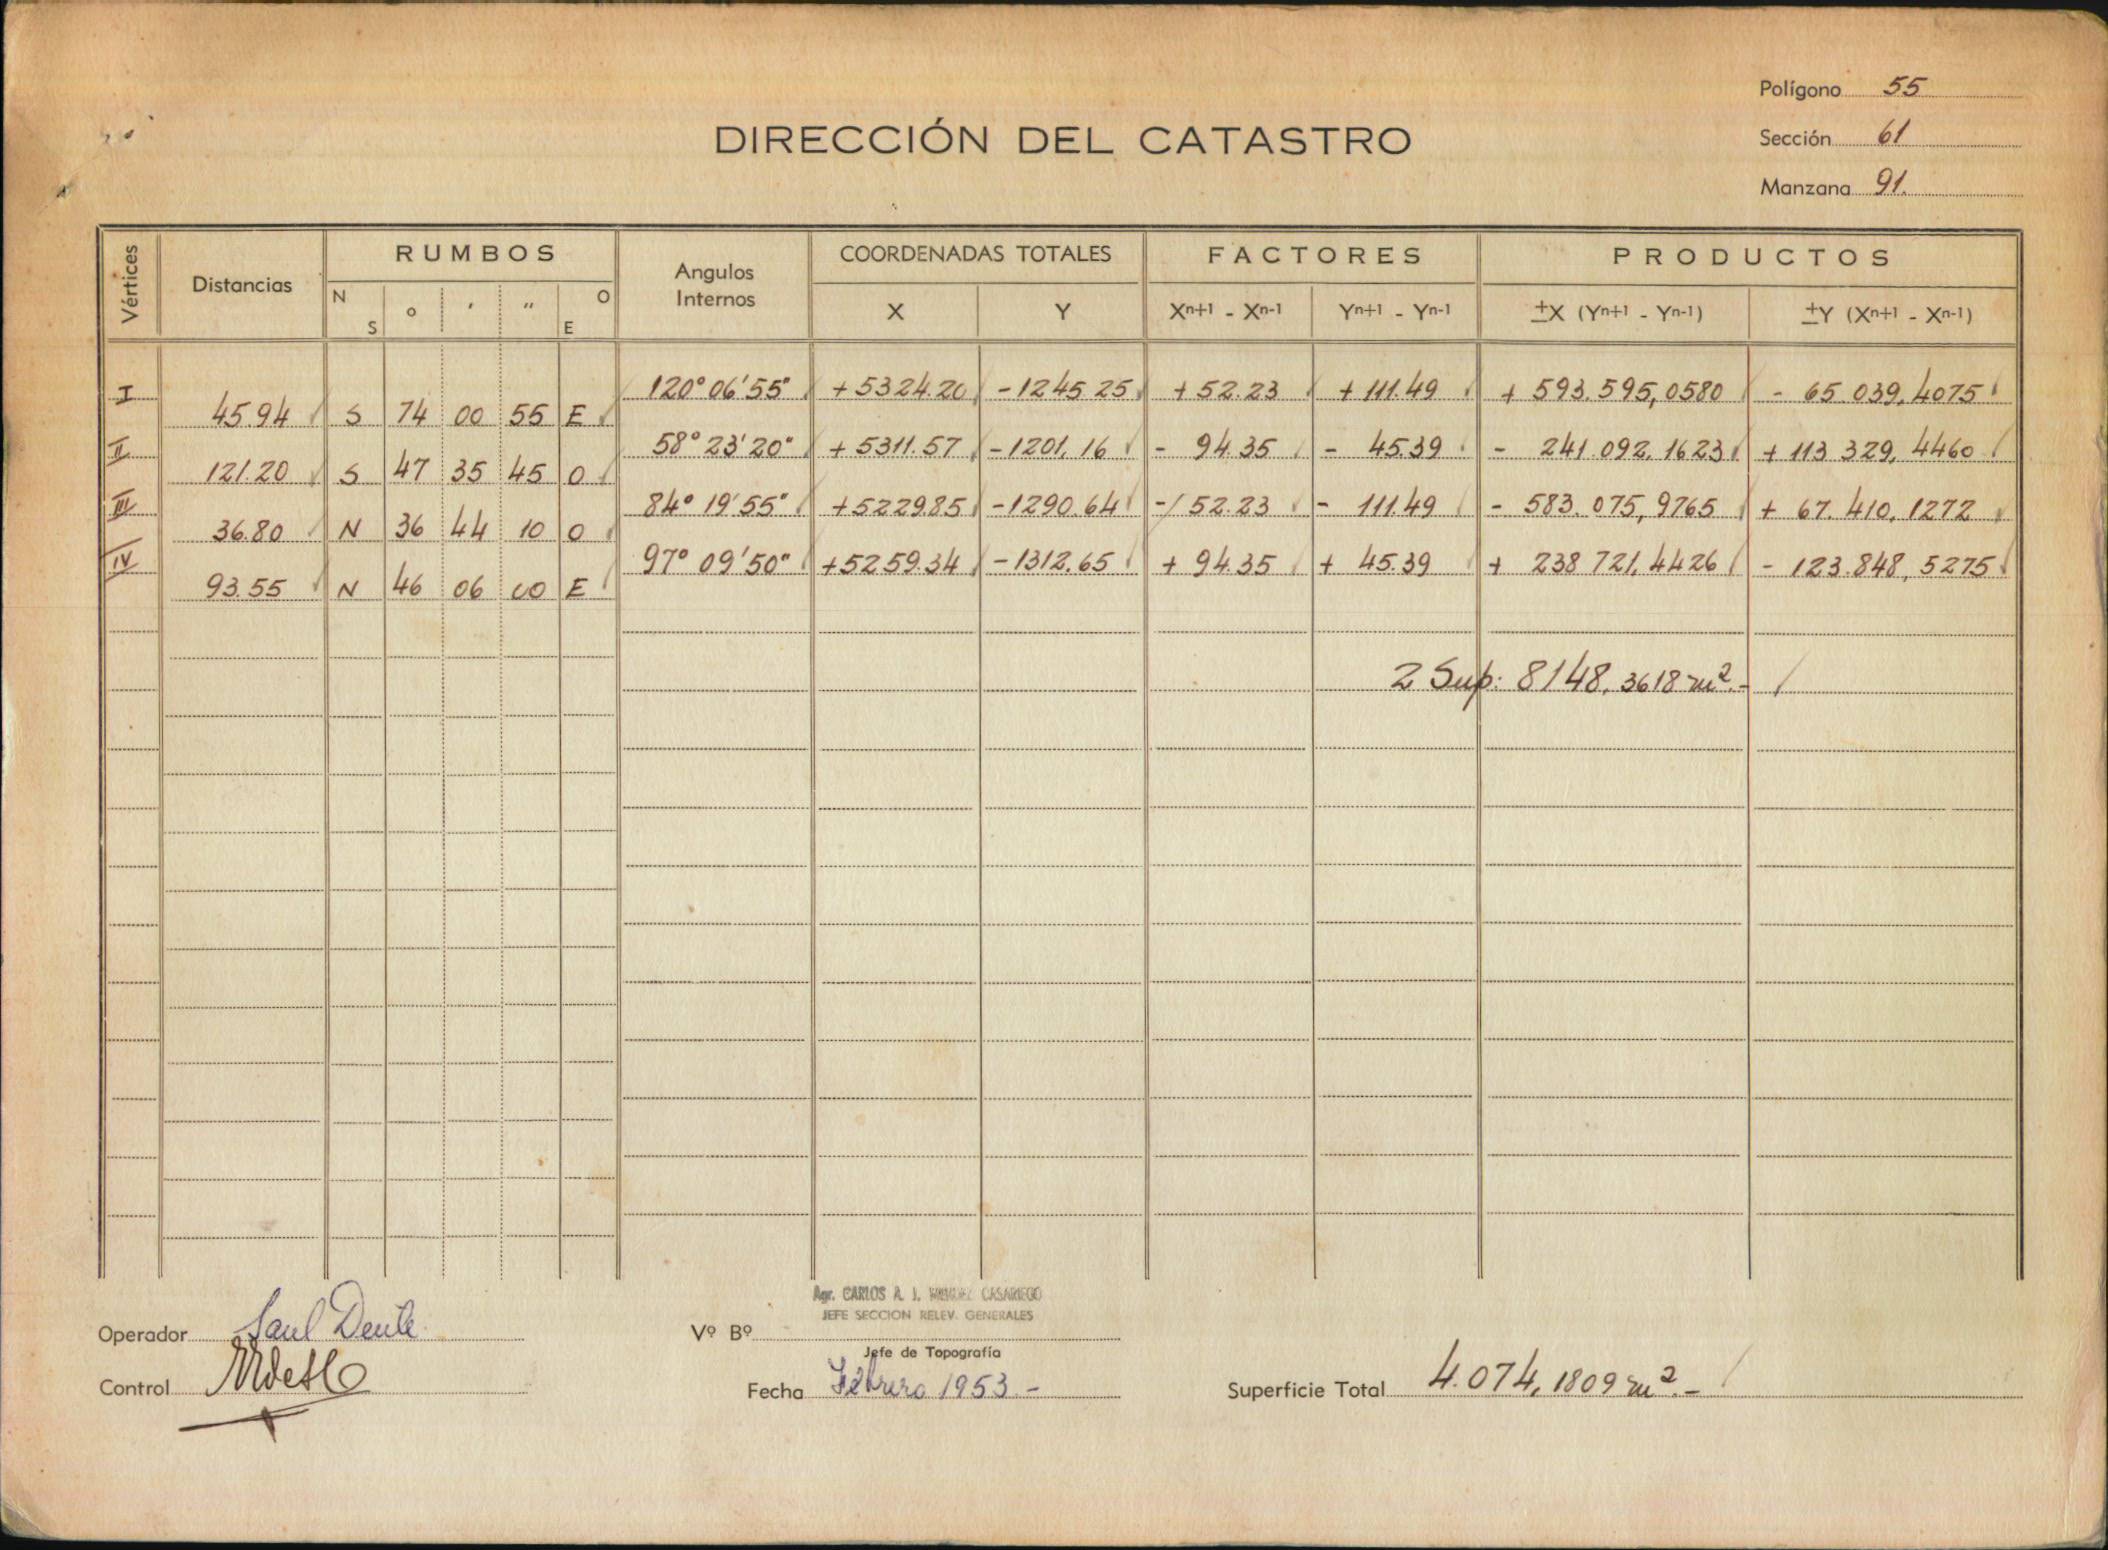 Polígono 55
DIRECCIÓN DEL CATASTRO
Sección 61
Manzana 91.
Vértices Distancias RUMBOS Angulos Internos COORDENADAS TOTALES FACTORES PRODUCTOS
N S ° ' " O E X Y Xn+1 - Xn-1 Yn+1 - Yn-1 ±X (Yn+1 - Yn-1) ±Y (Xn+1 - Xn-1)
I 120° 06' 55" +5324.20 -1245 25 +52.23 +111.49 +593.595,0580 -65 039,4075
45.94 S 74 00 55 E
II 58° 23' 20" +5311.57 -1201,16 -94.35 -45.39 -241.092,1623 +113 329,4460
121.20 S 47 35 45 O
III 84° 19' 55" +5229.85 -1290.64 -52.23 -111.49 -583.075,9765 +67.410,1272
36.80 N 36 44 10 O
IV 97° 09' 50" +5259.34 -1312.65 +94.35 +45.39 +238 721,4426 -123.848,5275
93.55 N 46 06 00 E
2 Sup: 8148,3618 m².-
Agr. CARLOS A. J. CASARIEGO
JEFE SECCION RELEV. GENERALES
Operador Saul
Vº Bº
Jefe de Topografía
Control
Fecha Febrero 1953 -
Superficie Total 4.074,1809 m².-